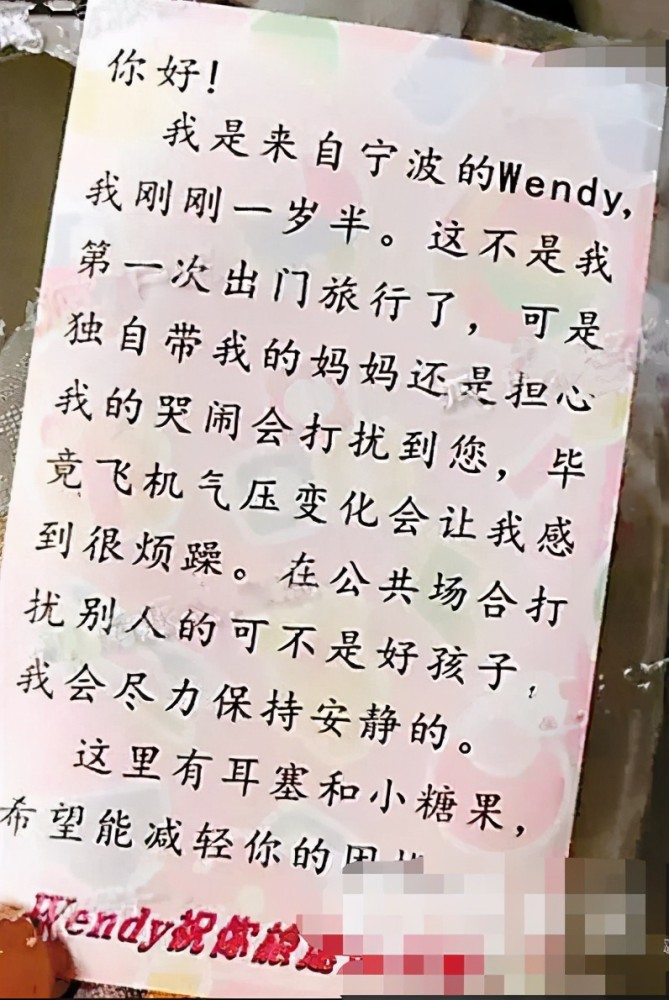 你好!
我是来自宁波的Wendy,
我刚刚一岁半。这不是我
第一次出门旅行了，可是
独自带我的妈妈还是担心
我的哭闹会打扰到您，毕
竟飞机气压变化会让我感
到很烦躁。在公共场合打
扰别人的可不是好孩子，
我会尽力保持安静的。
这里有耳塞和小糖果，
希望能减轻你的困
Wendy祝你旅途